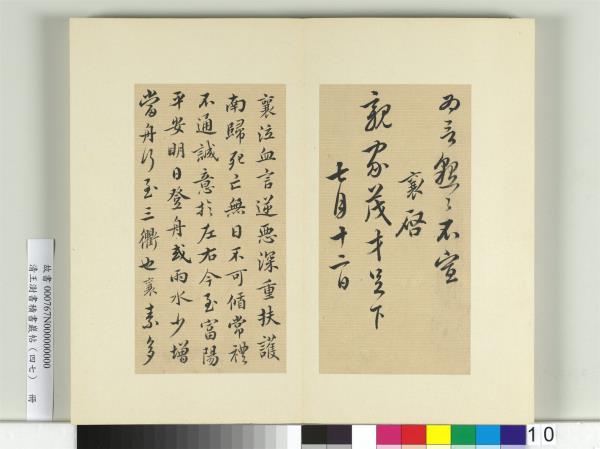 為言愧〻不宣
襄啓
親家茂才足下
七月十二日
襄泣血言逆惡深重扶護
南歸死亡無日不可脩常禮
不通誠意於左右今至富陽
平安明日登舟或雨水少增
當舟行至三衢也襄素多
故書 000767N000000000
清王澍書積書巖帖(四七) 冊
10